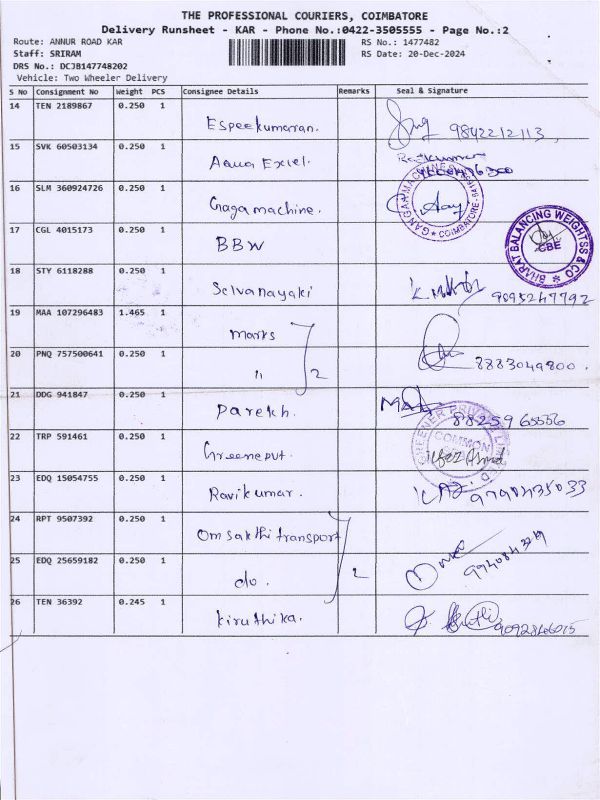 THE PROFESSIONAL COURIERS, COIMBATORE
Delivery Runsheet - KAR - Phone No.:0422-3505555 - Page No.:2
Route: ANNUR ROAD KAR RS No.: 1477482
Staff: SRIRAM RS Date: 20-Dec-2024
DRS No.: DCJB147748202
Vehicle: Two Wheeler Delivery
S No Consignment No Weight PCS Consignee Details Remarks Seal & Signature
14 TEN 2189867 0.250 1
Espeekumaran. 9842212113
15 SVK 60503134 0.250 1
Aqua Excel.
16 SLM 360924726 0.250 1
Gaga machine.
17 CGL 4015173 0.250 1
BBW
BHARAT BALANCING WEIGHTSS & CO
CBE
18 STY 6118288 0.250 1
Selvanayaki 9895247792
19 MAA 107296483 1.465 1
marks
20 PNQ 757500641 0.250 1
" 2 8883049800.
21 DDG 941847 0.250 1
Parekh. 88259 65556
22 TRP 591461 0.250 1
Greeneput.
COMMON
23 EDQ 15054755 0.250 1
Ravikumar.
24 RPT 9507392 0.250 1
Omsakthi transport
25 EDQ 25659182 0.250 1
do. 2
26 TEN 36392 0.245 1
Kiruthika. 9092846015